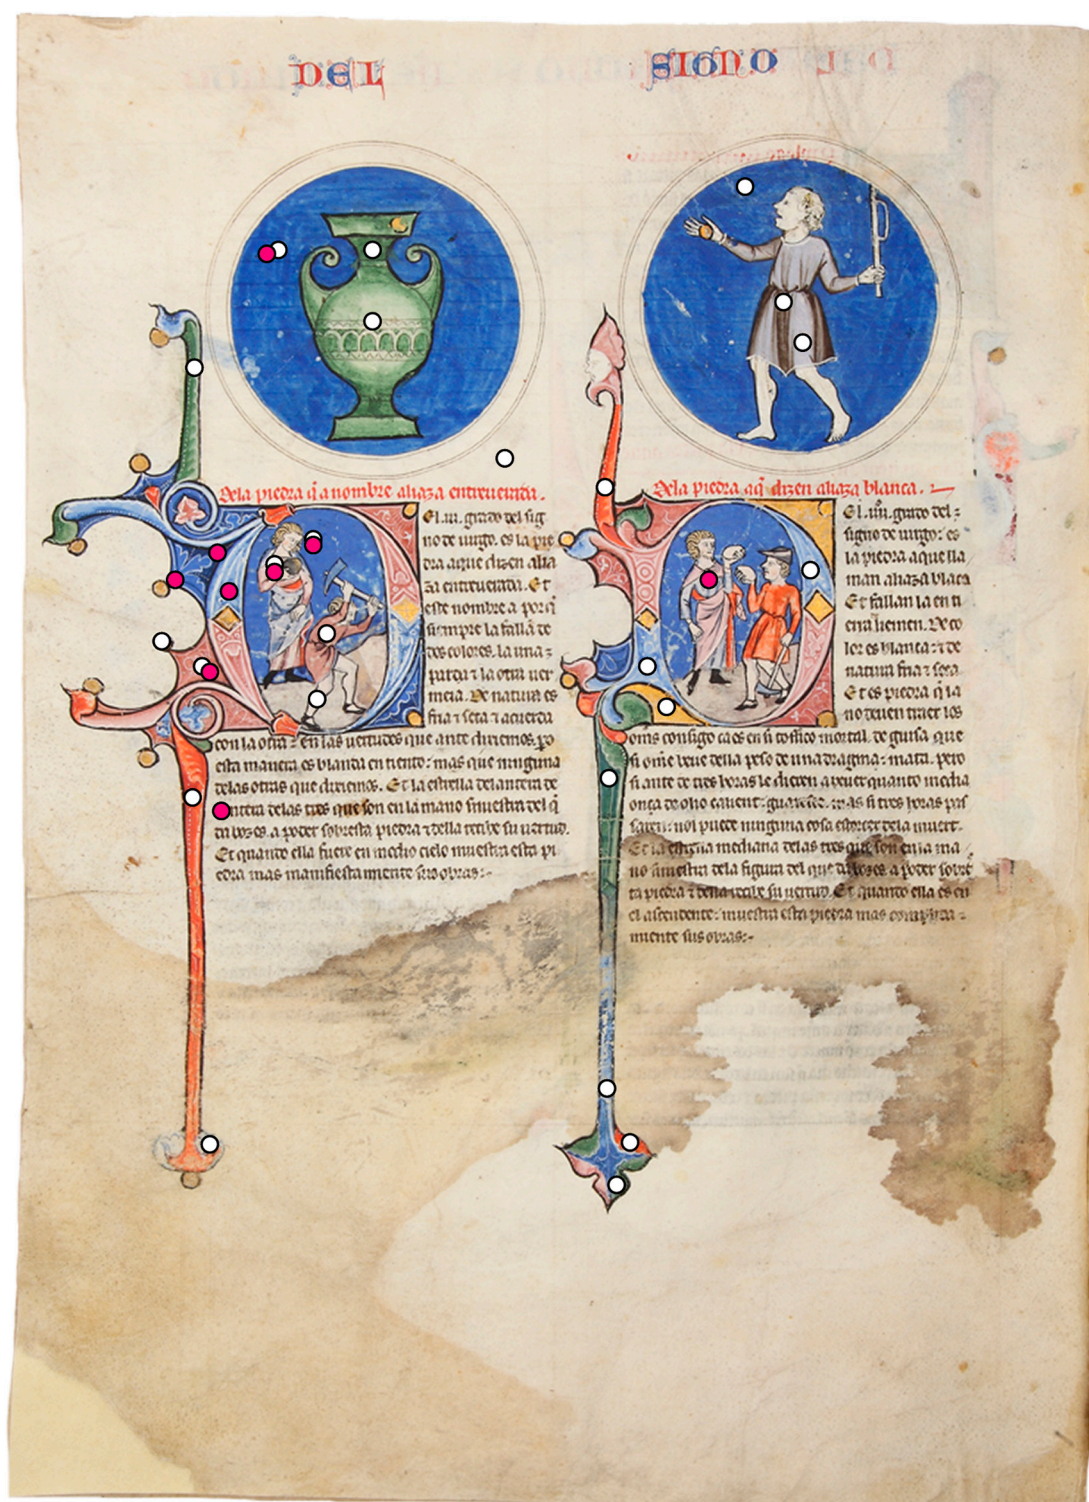 DEL SIGNO
Dela piedra q̃ a nombre aliaza entreuerada.
El .iii. grado del sig
no de uirgo. es la pie
dra aque dizen alia
za entreuerada. Et
este nombre a porq̃
siempre la fallã de
dos colores. la una
parda ⁊ la otra uer
meia. De natura es
fria ⁊ seca ⁊ acuerda
con la otra en las uertudes que ante dixiemos. po
esta manera es blanda en tiento: mas que ninguna
delas otras que dixiemos. Et la estrella delantera de
delas tres que son en la mano siniestra del q̃
da bozes. a poder sobresta piedra ⁊ della recibe su uertud.
Et quando ella fuere en medio cielo muestra esta pi
edra mas manifiesta miente sus obras:-
Dela piedra aq̃ dizen aliaza blanca.
El .iiii. grado del
signo de uirgo: es
la piedra a que lla
man aliaza blãca
Et fallan la en ti
erra
lor es blanca: ⁊ de
natura fria ⁊ seca.
Et es piedra q̃ la
no deuen traer los
oms consigo ca es en si tossico mortal. de guisa que
si ome beue della peso de una dragma: mata. pero
si ante de tres horas le dieren a beuer quanto media
onça de olio calient: guarescer. mas si tres horas pas
saren: nol puede ninguna cosa estorcer dela muert.
Et la mediana delas tres que son en la ma
no siniestra dela figura del que da bozes a poder sobre
ta piedra ⁊ della recibe su uertud. Et quando ella es en
el ascendente: muestra esta piedra mas
miente sus obras:-